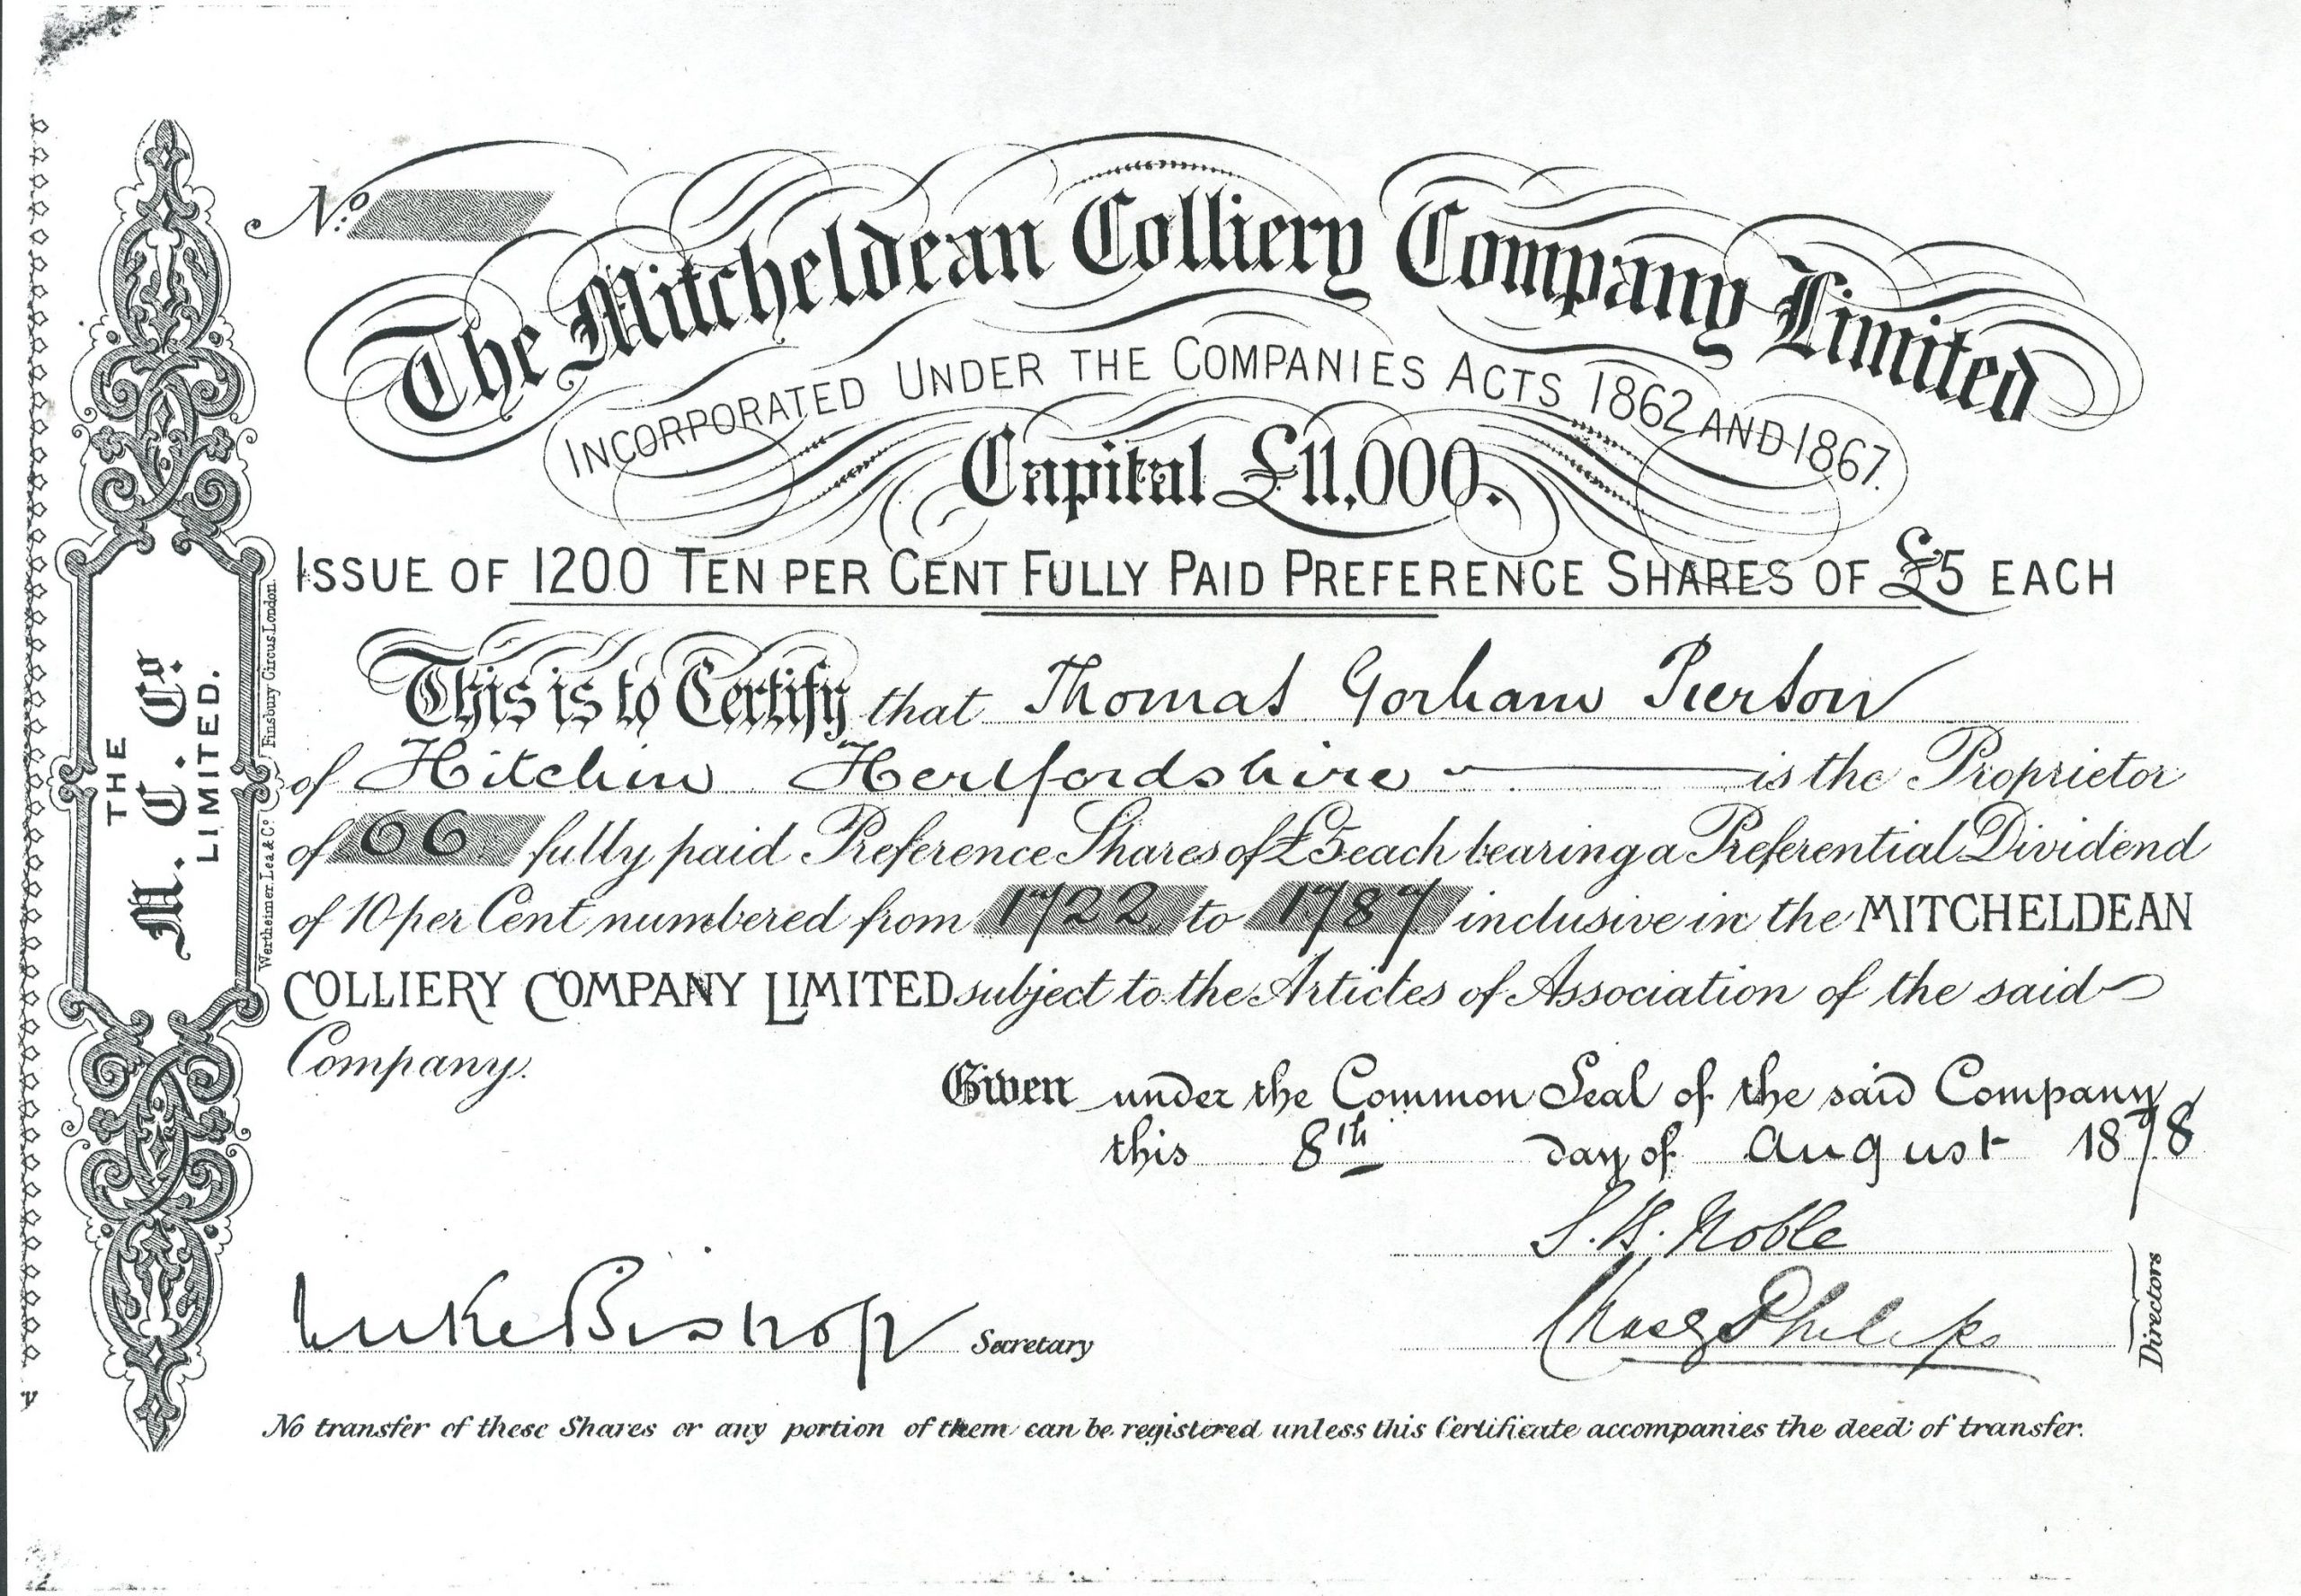 No.
The Mitcheldean Colliery Company Limited
INCORPORATED UNDER THE COMPANIES ACTS 1862 AND 1867.
Capital £11,000.
ISSUE OF 1200 TEN PER CENT FULLY PAID PREFERENCE SHARES OF £5 EACH
This is to Certify that Thomas Gorham Pierson
of Hitchin Hertfordshire is the Proprietor
of 66 fully paid Preference Shares of £5 each bearing a Preferential Dividend
of 10 per Cent numbered from 1722 to 1787 inclusive in the MITCHELDEAN
COLLIERY COMPANY LIMITED subject to the Articles of Association of the said
Company.
Given under the Common Seal of the said Company
this 8th day of August 1878
S. H. Noble
Luke Bishop Secretary
Philips
Directors
No transfer of these Shares or any portion of them can be registered unless this Certificate accompanies the deed of transfer.
THE
M. C. Co.
LIMITED.
Wertheimer, Lea & Co. Finsbury Circus, London.